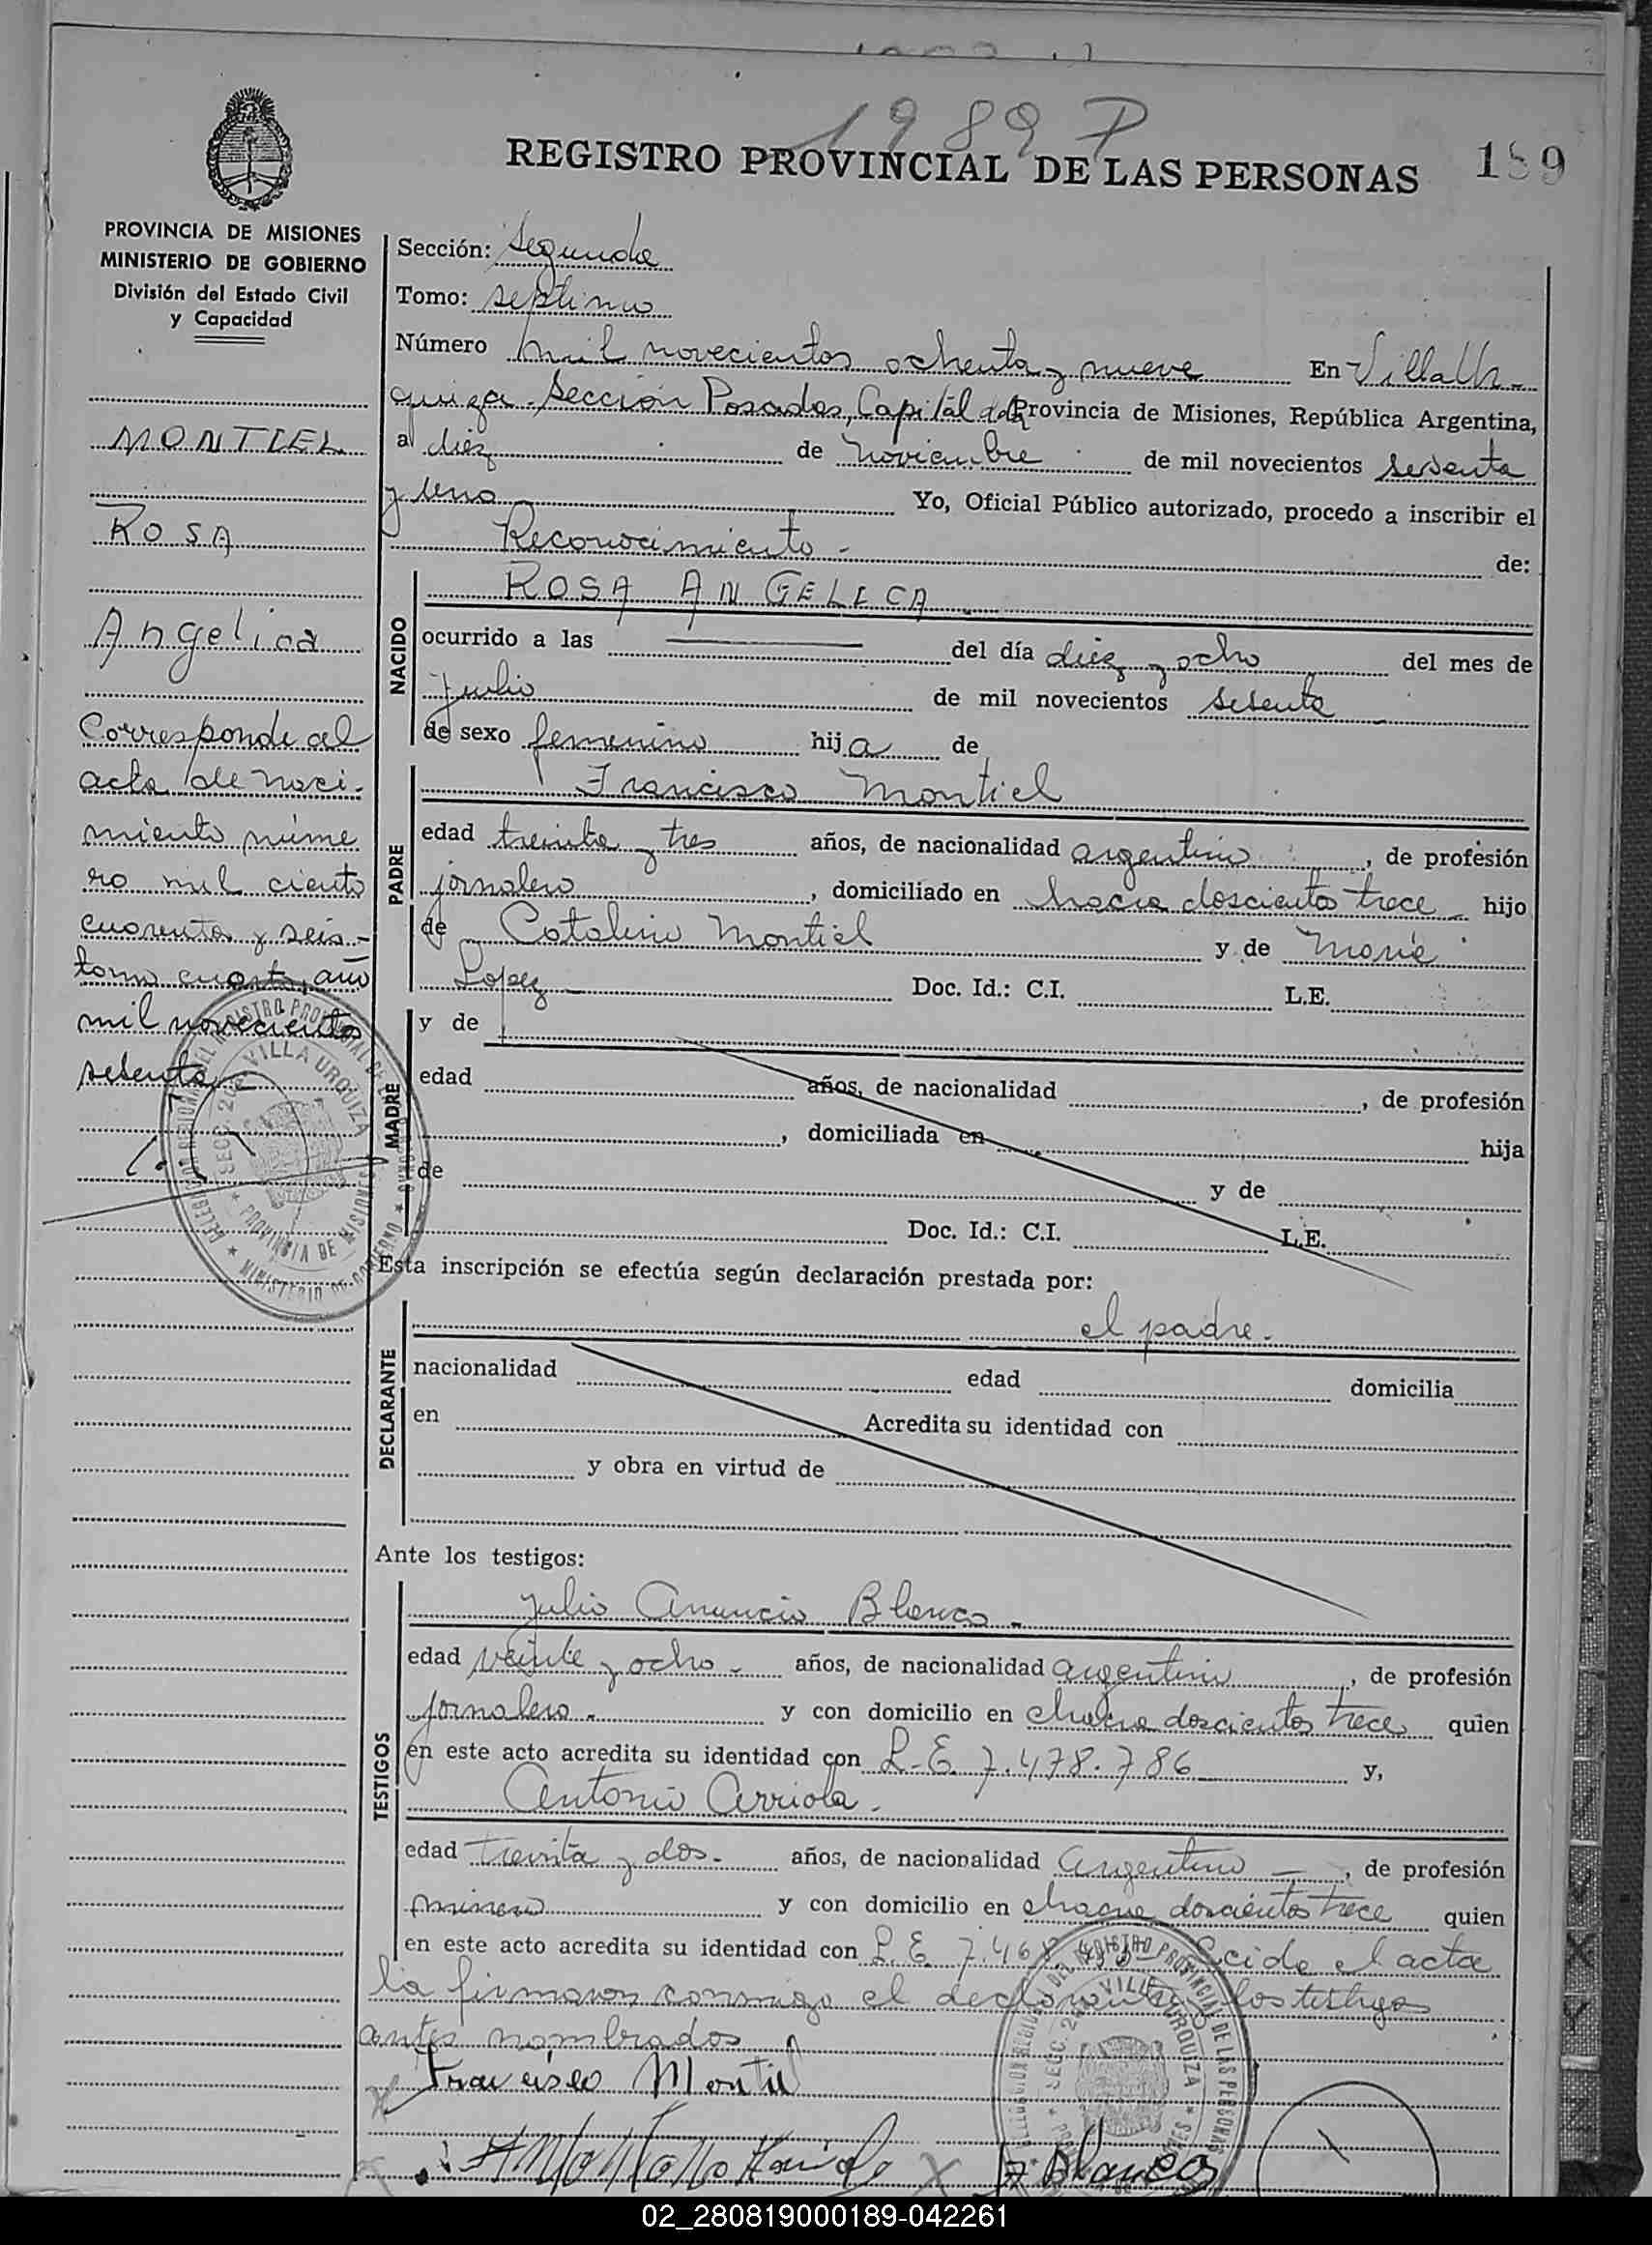 1989 P
REGISTRO PROVINCIAL DE LAS PERSONAS
189
PROVINCIA DE MISIONES
MINISTERIO DE GOBIERNO
División del Estado Civil
y Capacidad
MONTIEL
ROSA
Angelica
Corresponde al
acta de naci-
miento núme
ro mil ciento
cuarenta y seis-
tomo cuarto, año
mil novecientos
setenta
Sección: Segunda
Tomo: septimo
Número mil novecientos ochenta y nueve En Villa Ur-
quiza. Sección Posadas, Capital de la Provincia de Misiones, República Argentina,
a diez de Noviembre de mil novecientos setenta
y uno Yo, Oficial Público autorizado, procedo a inscribir el
Reconocimiento - de:
NACIDO
ROSA ANGELICA
ocurrido a las del día diez y ocho del mes de
Julio de mil novecientos setenta
de sexo femenino hija de
PADRE
Francisco Montiel
edad treinta y tres años, de nacionalidad argentino, de profesión
jornalero, domiciliado en chacra doscientos trece hijo
de Catalino Montiel y de María
Lopez Doc. Id.: C.I. L.E.
MADRE
y de
edad años, de nacionalidad , de profesión
, domiciliada en hija
de y de
Doc. Id.: C.I. L.E.
Esta inscripción se efectúa según declaración prestada por:
DECLARANTE
el padre.
nacionalidad edad domicilia
en Acredita su identidad con
y obra en virtud de
Ante los testigos:
TESTIGOS
Julio Anuncio Blanco -
edad veinte y ocho - años, de nacionalidad argentino, de profesión
jornalero. y con domicilio en chacra doscientos trece quien
en este acto acredita su identidad con L.E. 7.478.786 y,
Antonio Arriola.
edad treinta y dos - años, de nacionalidad Argentino -, de profesión
minero y con domicilio en chacra doscientos trece quien
en este acto acredita su identidad con L.E. 7.46 Leida el acta
la firmaron conmigo el declarante y los testigos
antes nombrados
Francisco Montiel
J Blanco
DELEGACION REGIONAL DEL REGISTRO PROVINCIAL DE LAS PERSONAS
SECC. 2da VILLA URQUIZA
PROVINCIA DE MISIONES
MINISTERIO DE GOBIERNO
02_280819000189-042261